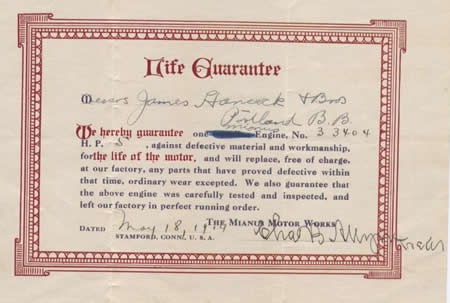 Life Guarantee
Messrs James Hancock & Bros
Portland B.B.
We hereby guarantee one Mianus Engine, No. 33404
H. P. 5, against defective material and workmanship,
for the life of the motor, and will replace, free of charge
at our factory, any parts that have proved defective within
that time, ordinary wear excepted. We also guarantee that
the above engine was carefully tested and inspected, and
left our factory in perfect running order.
THE MIANUS MOTOR WORKS
DATED May 18, 19
STAMFORD, CONN., U. S. A.